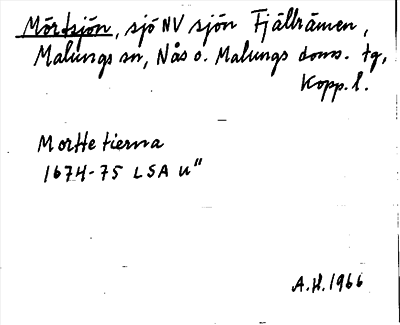 Mörtsjön, sjö NV sjön Fjällrämen,
Malungs sn, Nås o. Malungs doms. tg,
Kopp. l.
Mortte tierna
1674-75 LSA u"
A.H. 1966